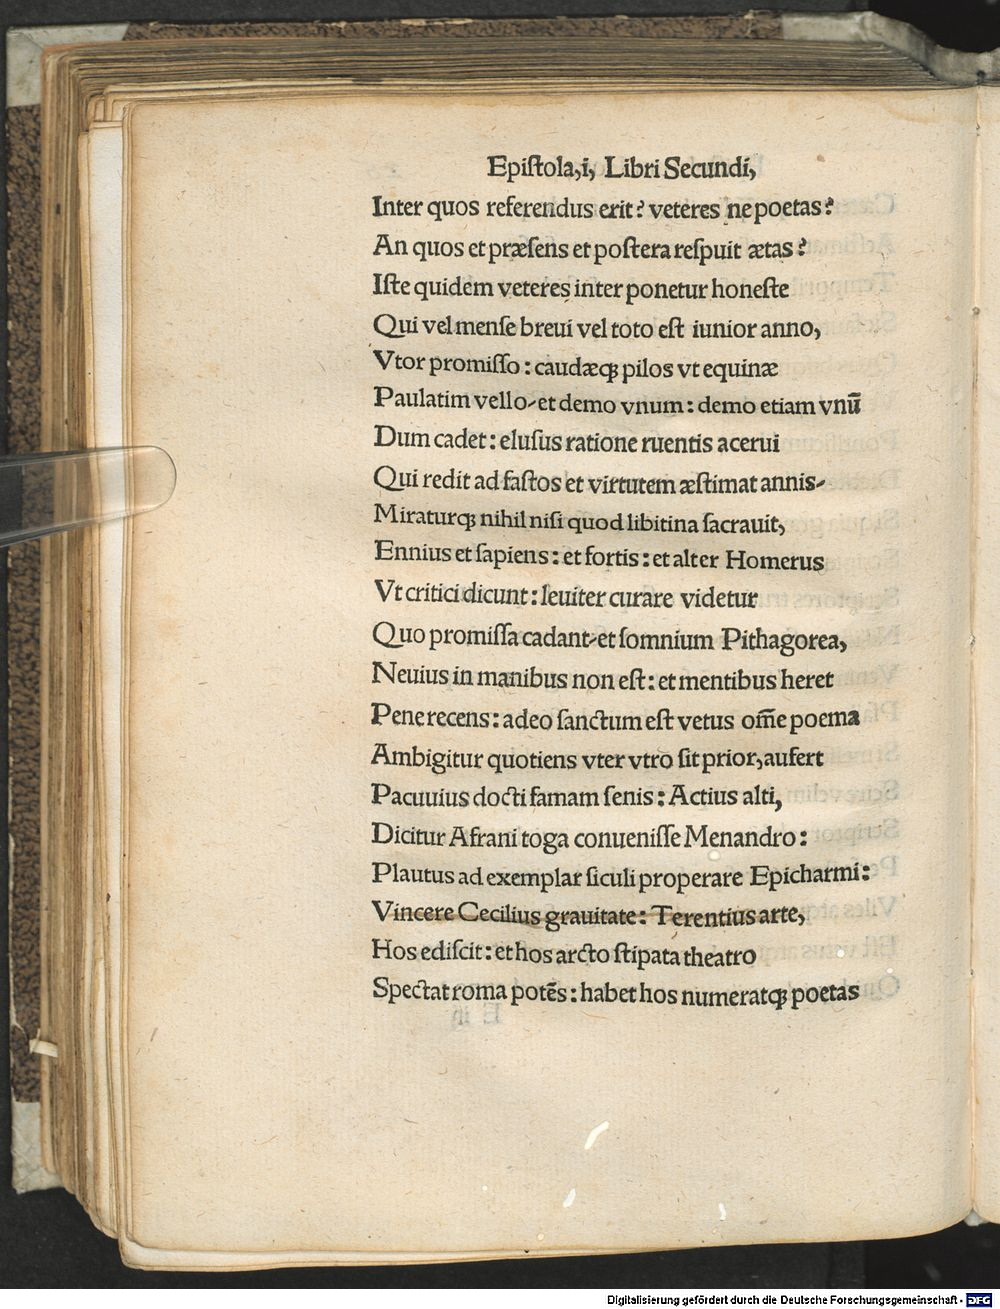 Epiſtola,i, Libri Secundi,
Inter quos referendus erit? veteres ne poetas?
An quos et præſens et poſtera reſpuit ætas?
Iſte quidem veteres inter ponetur honeſte
Qui vel menſe breui vel toto eſt iunior anno,
Vtor promiſſo: caudæqꝫ pilos vt equinæ
Paulatim vello-et demo vnum: demo etiam vnū
Dum cadet: eluſus ratione ruentis acerui
Qui redit ad faſtos et virtutem æſtimat annis-
Miraturqꝫ nihil niſi quod libitina ſacrauit,
Ennius et ſapiens: et fortis: et alter Homerus
Vt critici dicunt: leuiter curare videtur
Quo promiſſa cadant-et ſomnium Pithagorea,
Neuius in manibus non eſt: et mentibus heret
Pene recens: adeo ſanctum eſt vetus om̅e poema
Ambigitur quotiens vter vtro ſit prior, aufert
Pacuuius docti famam ſenis: Actius alti,
Dicitur Afrani toga conueniſſe Menandro:
Plautus ad exemplar ſiculi properare Epicharmi:
Vincere Cecilius grauitate: Terentius arte,
Hos ediſcit: et hos arcto ſtipata theatro
Spectat roma potēs: habet hos numeratqꝫ poetas
Digitalisierung gefördert durch die Deutsche Forschungsgemeinschaft - DFG